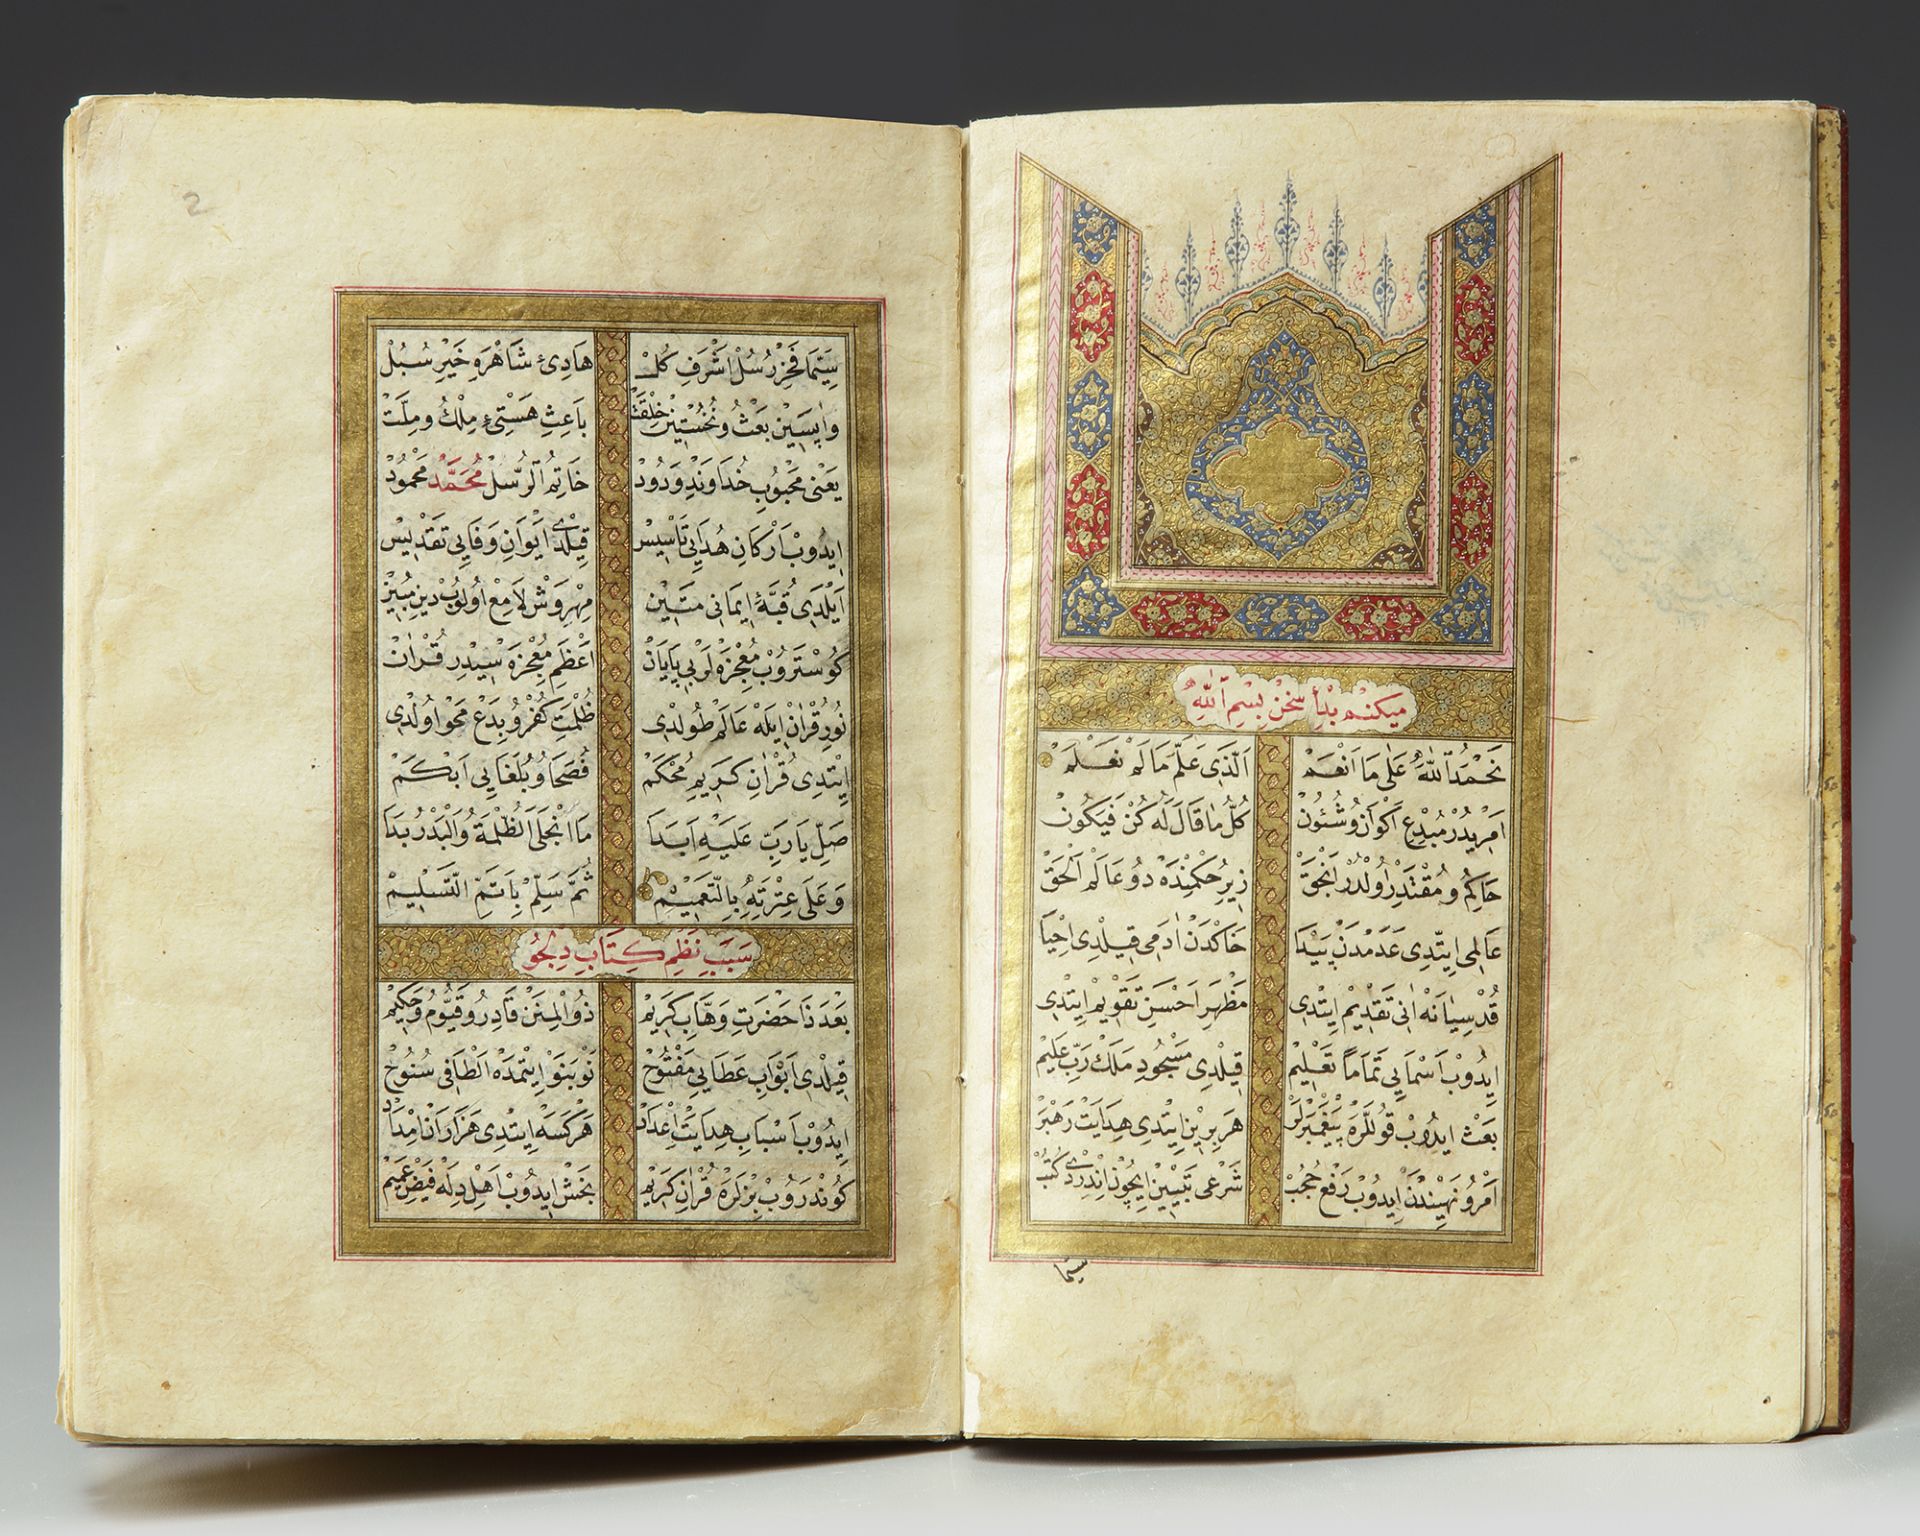 ميكنم بدأ سخن بسم الله
نحمد الله على ما انعم الذى علم ما لم نعلم
امريدر مبدع اكوان وشئون كل ما قال له كن فيكون
حاكم ومقتدر اولدر انجق زير حكمنده دو عالم الحق
عالمى ايتدى عدمدن پيدا خاكدن ادمى قيلدى احيا
قدسيانه انى تقديم ايتدى مظهر احسن تقويم ايتدى
ايدوب اسمايى تماما تعليم قيلدى مسجود ملك رب عليم
بعث ايدوب قوللره پيغمبرلر هر برين ايتدى هدايت رهبر
امر و نهيندن ايدوب رفع حجب شرعى تبيين ايچون اندردى كتب
سيما
2
سيما فخر رسل اشرف كل هادئ شاهره خير سبل
واپسين بعث و نخستين خلقت باعث هستئ ملك و ملت
يعنى محبوب خداوند ودود خاتم الرسل محمد محمود
ايدوب اركان هدايى تاسيس قيلدى ايوان وفايى تقديس
ايلدى قبۀ ايمانى متين مهروش لامع اولوب دين مبين
كوستروب معجزه لر بى پايان اعظم معجزه سيدر قران
نور قران ايله عالم طولدى ظلمت كفر و بدع محو اولدى
ايتدى قران كريم محكم فصحا و بلغايى ابكم
صل يا رب عليه ابدا ما انجلى الظلمة والبدر بدا
وعلى عترته بالتعميم ثم سلم باتم التسليم
سبب نظم كتاب دلجو
بعد ذا حضرت وهاب كريم ذو المنن قادر و قيوم و حكيم
قيلدى ابواب عطايى مفتوح نو بنو ايتمده الطافى سنوح
ايدوب اسباب هدايت اعداد هر كسه ايتدى هزاران امداد
كوندروب بزلره قران كريم بخش ايدوب اهل دله فيض عميم